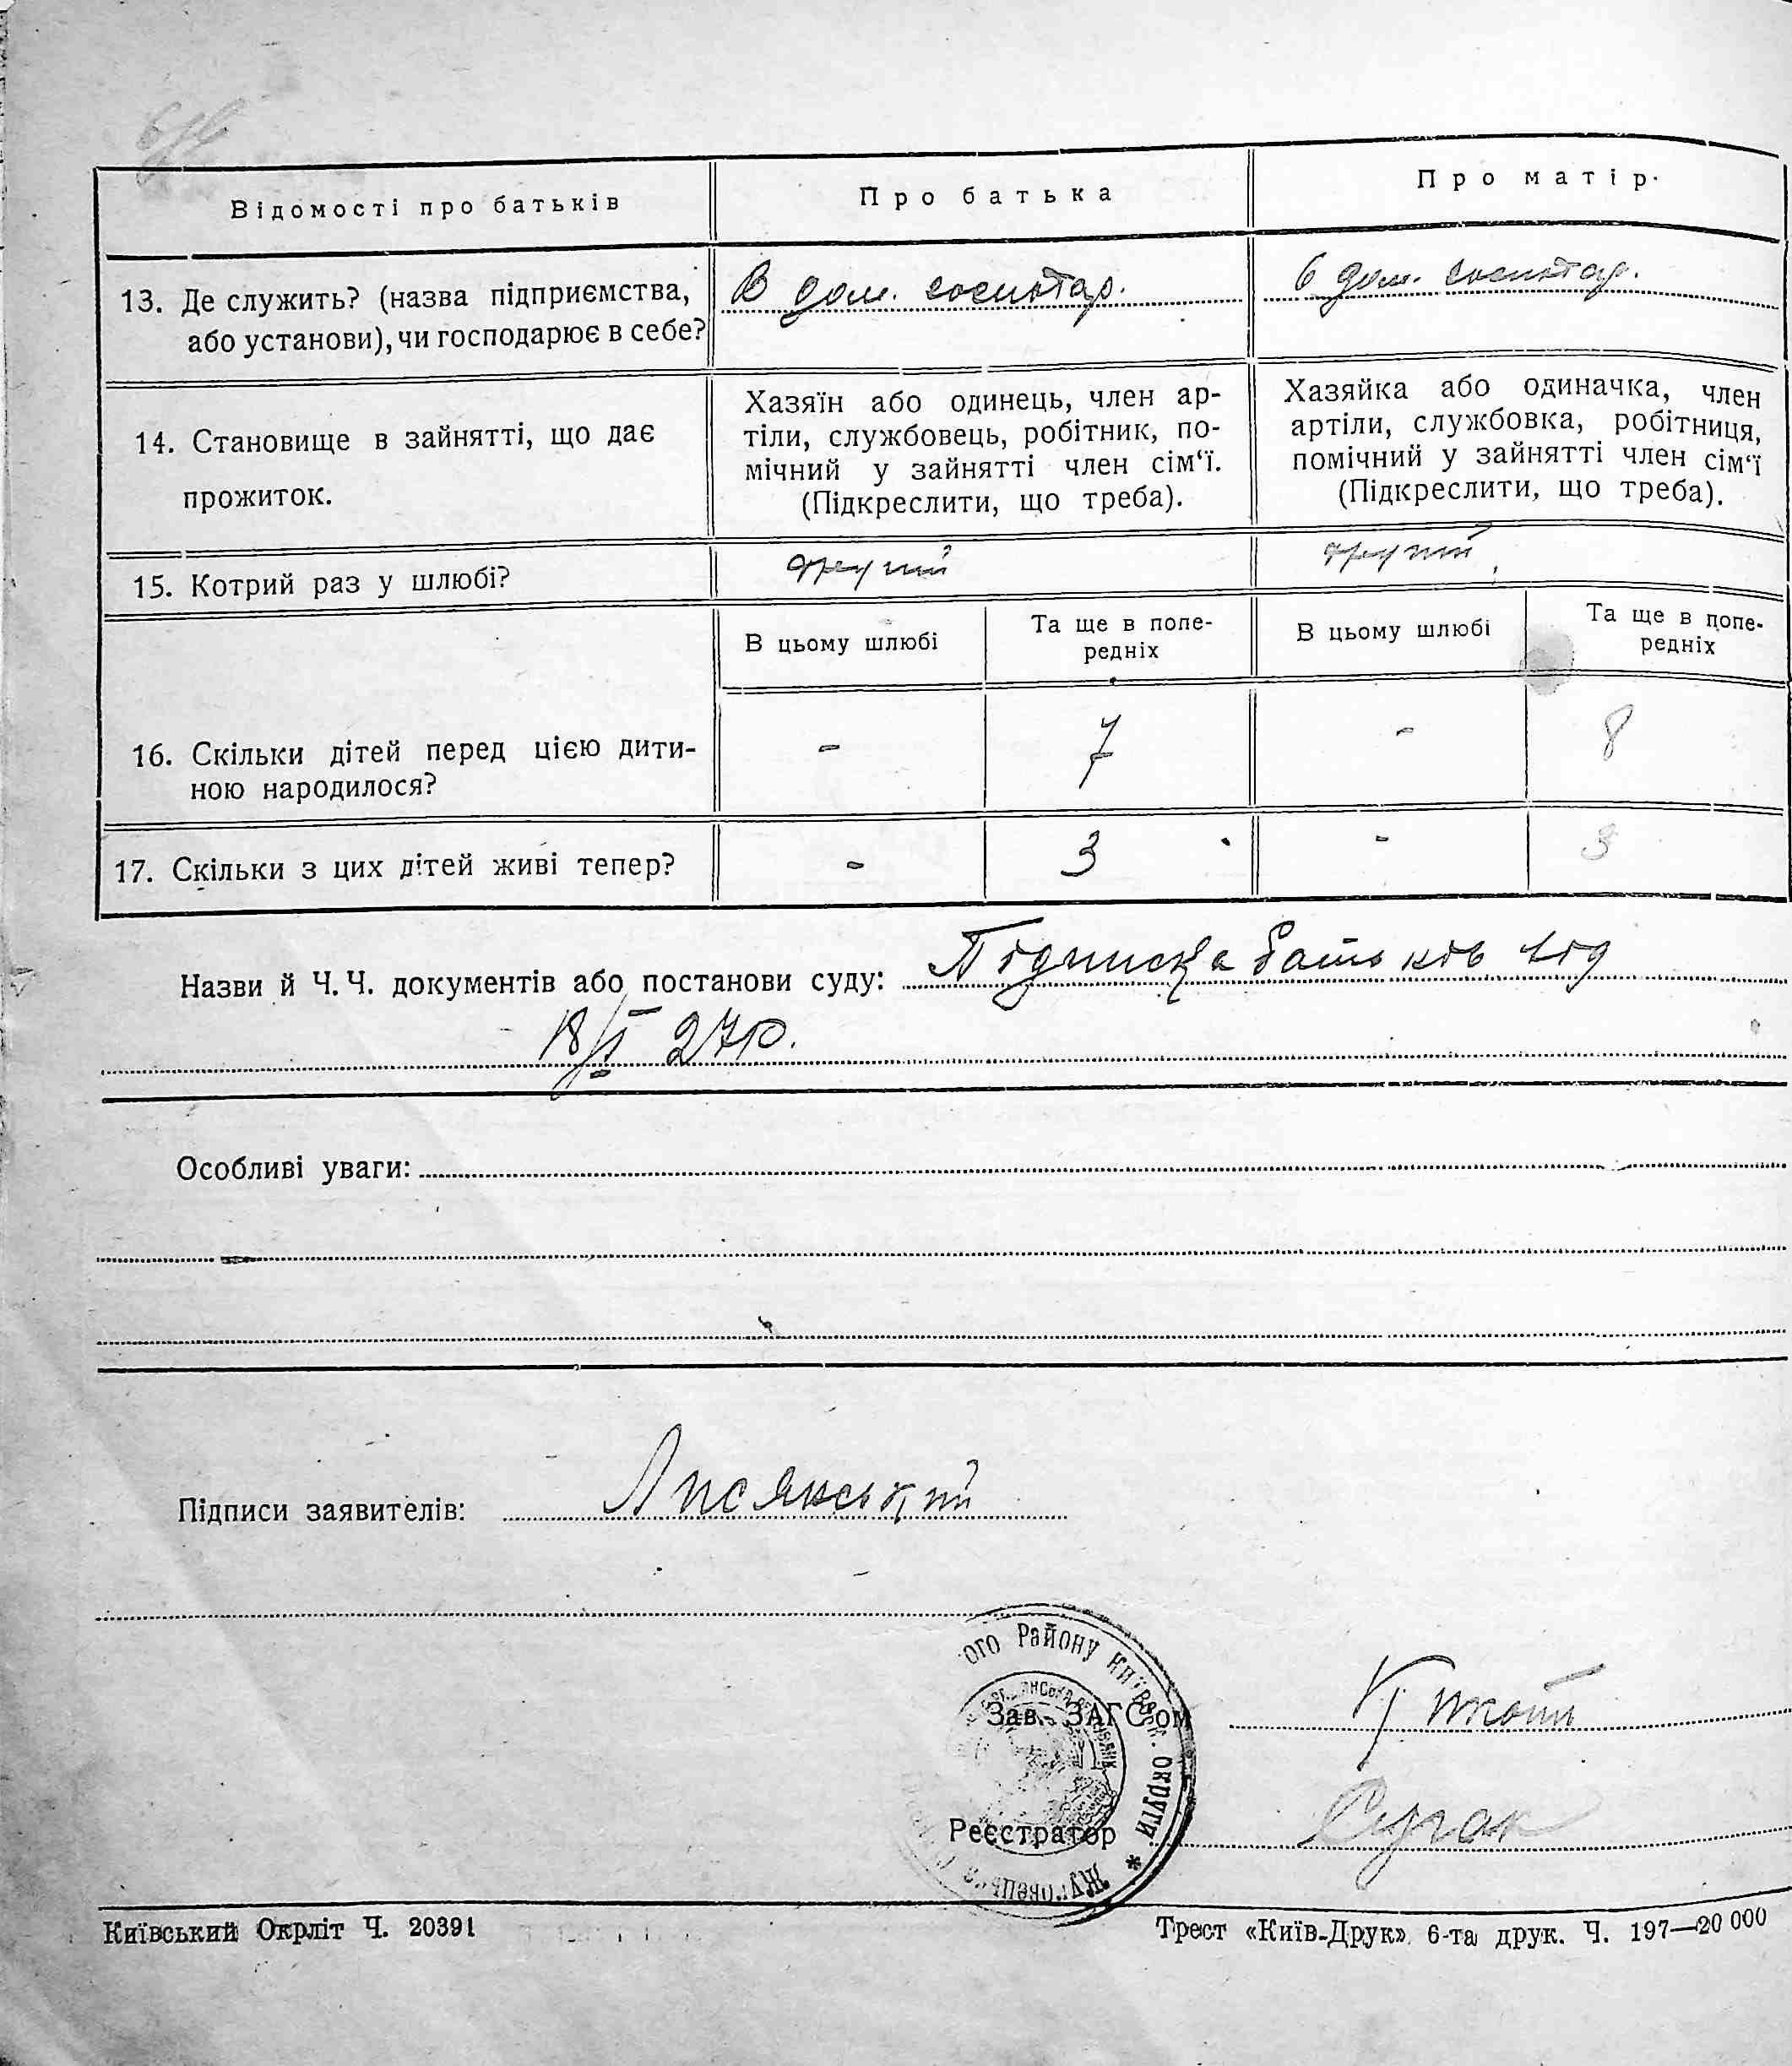 Відомості про батьків
Про батька
Про матір.
13. Де служить? (назва підприємства,
або установи), чи господарює в себе?
В дом. господар.
в дом. господар.
14. Становище в зайнятті, що дає
прожиток.
Хазяїн або одинець, член ар-
тіли, службовець, робітник, по-
мічний у зайнятті член сім‘ї.
(Підкреслити, що треба).
Хазяйка або одиначка, член
артіли, службовка, робітниця,
помічний у зайнятті член сім‘ї
(Підкреслити, що треба).
15. Котрий раз у шлюбі?
другий
другий
В цьому шлюбі
Та ще в попе-
редніх
В цьому шлюбі
Та ще в попе-
редніх
16. Скільки дітей перед цією дити-
ною народилося?
-
7
-
8
17. Скільки з цих дітей живі тепер?
-
3
-
3
Назви й Ч. Ч. документів або постанови суду: Підписка батьків від
18/I 27 р.
Особливі уваги:
Підписи заявителів: Лисянський
ого Району Київськ. округи *
Зав. ЗАГС‘ом
Реєстратор
Київський Окрліт Ч. 20391
Трест «Київ-Друк» 6-та друк. Ч. 197—20 000